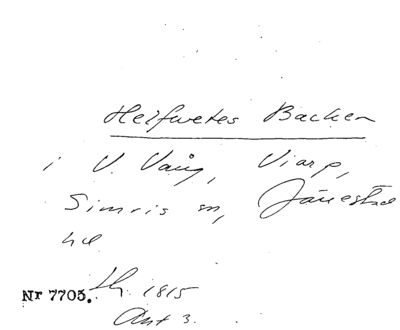 Helfwetes Backen
i V. Vång, Viarp,
Simris sn, Järrestad
hd
Nr 7705. 1815
Akt 3.